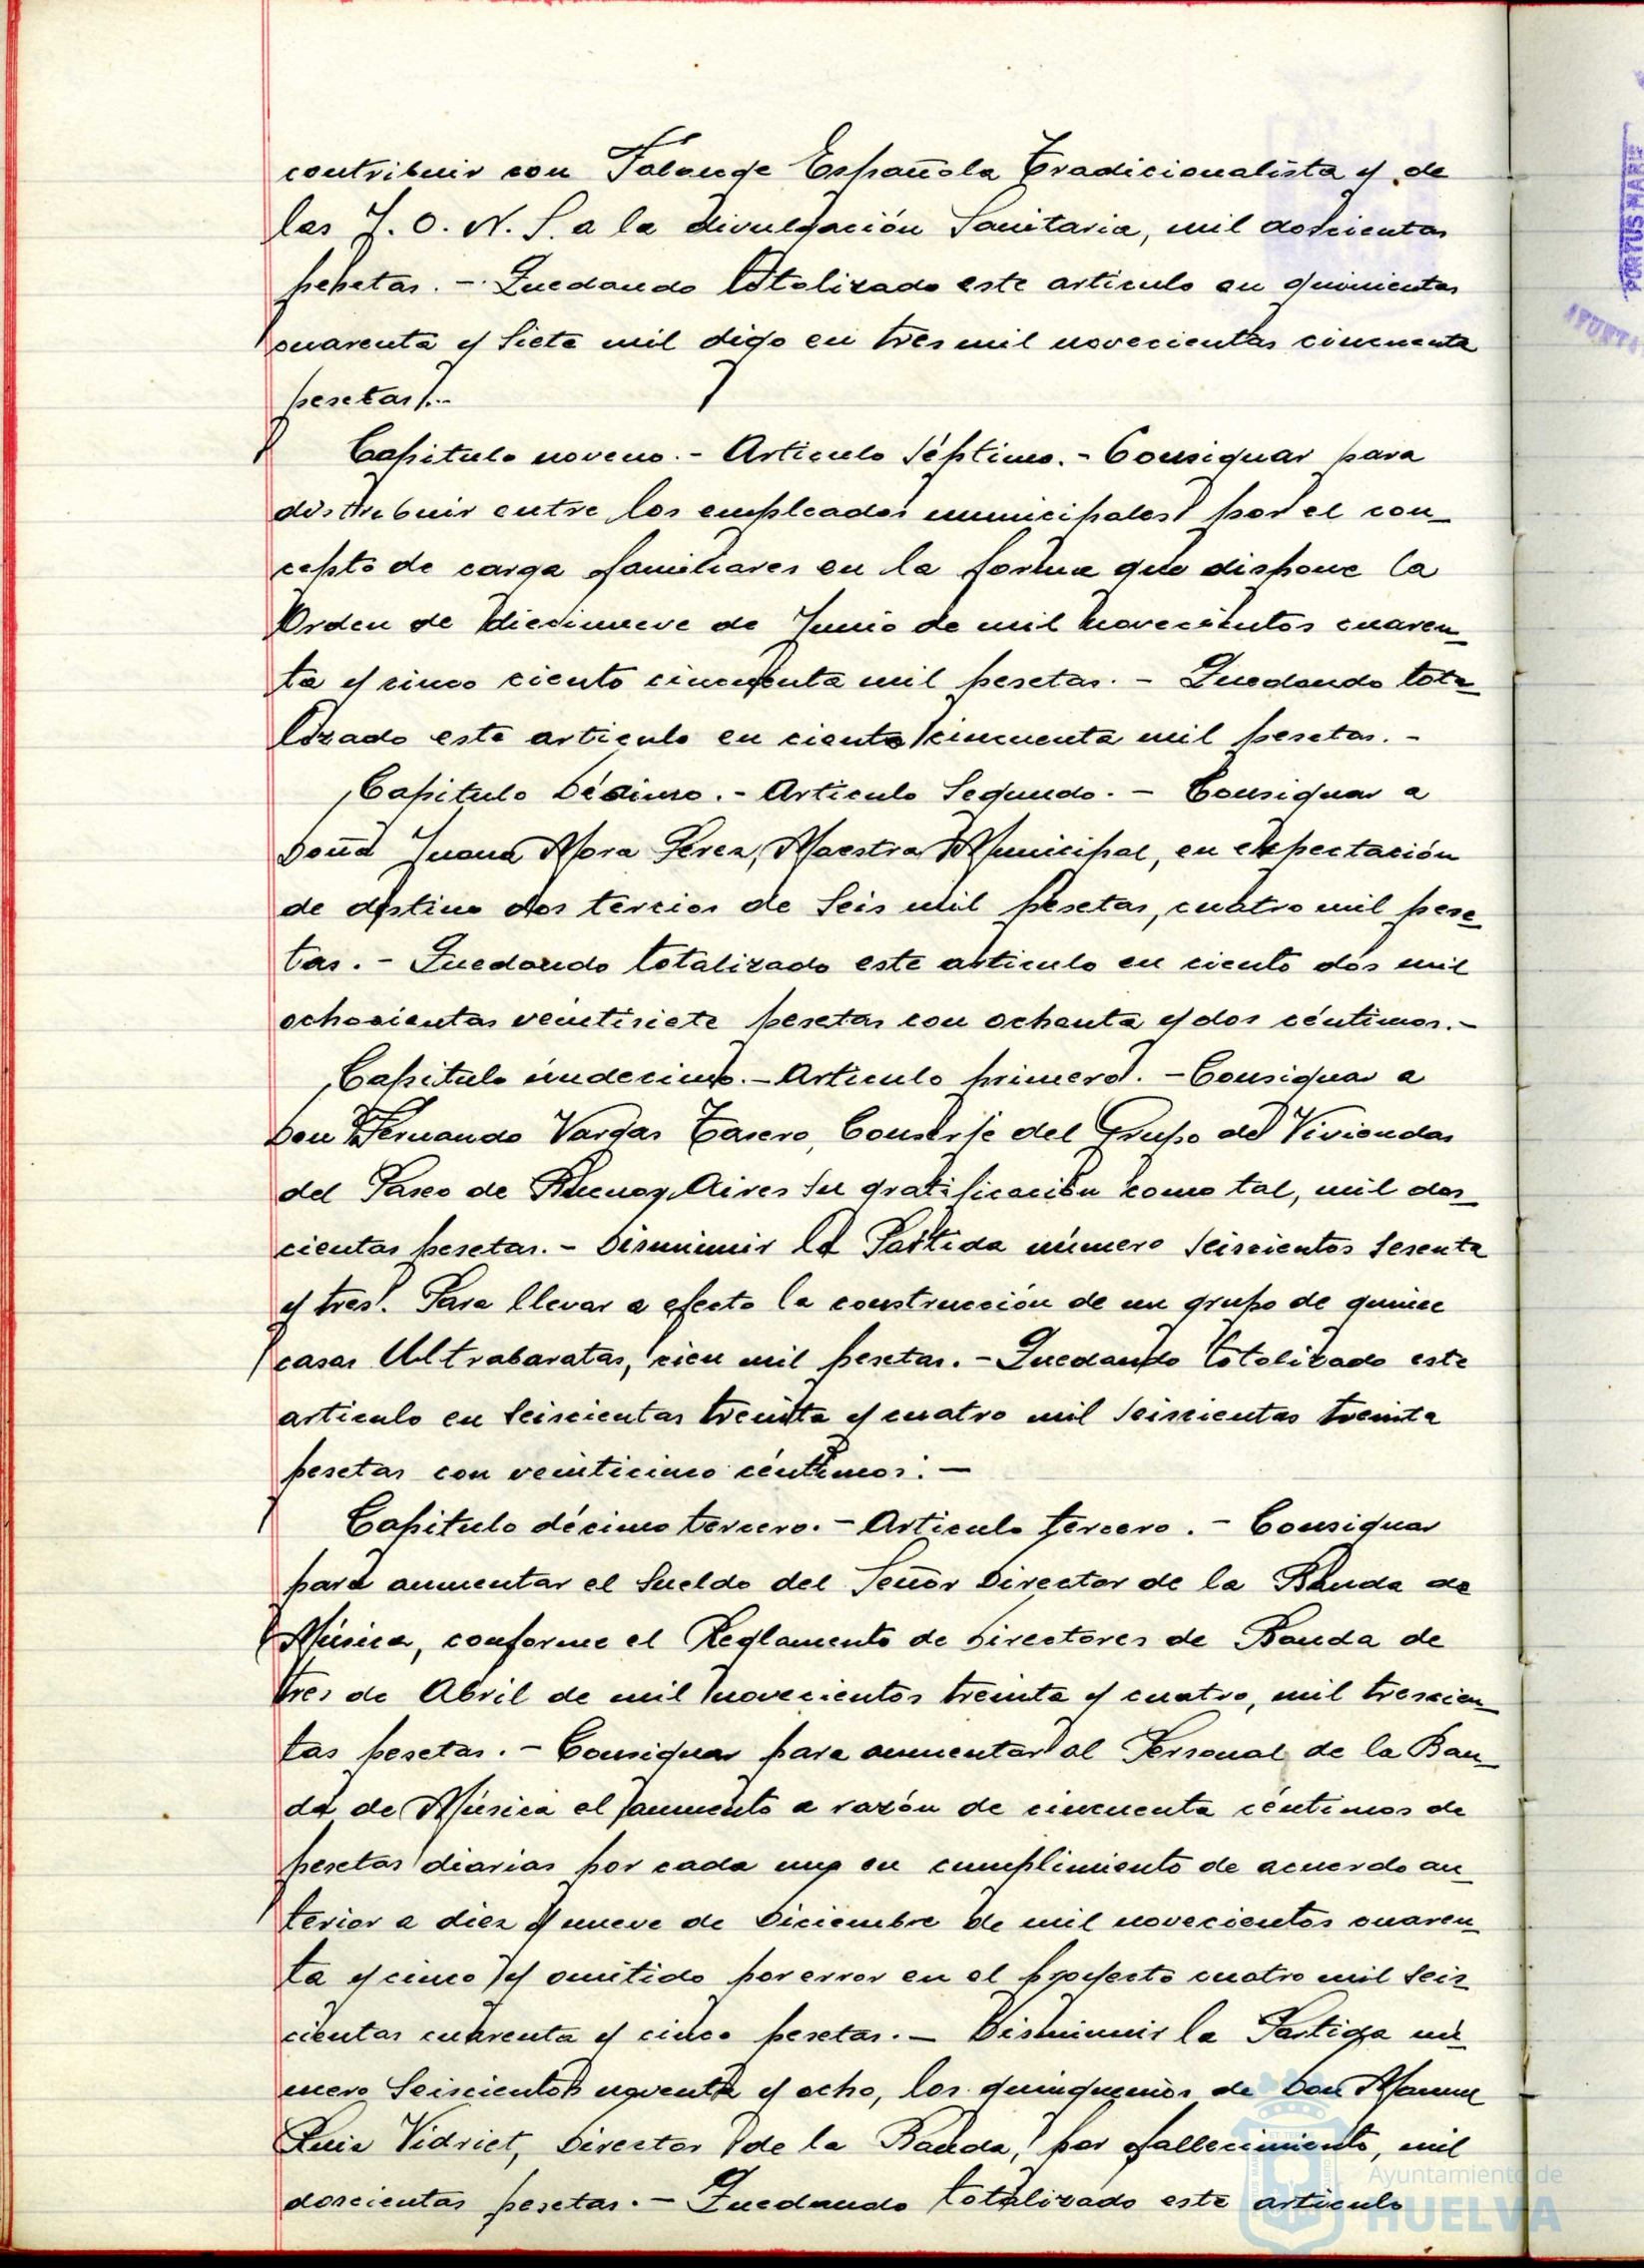 contribuir con Falange Española Tradicionalista y de
las J.O.N.S. a la divulgación Sanitaria, mil doscientas
pesetas. - Quedando totalizado este articulo en quinientas
cuarenta y siete mil digo en tres mil novecientas cincuenta
pesetas.-
Capitulo noveno. - Articulo Séptimo. - Consignar para
distribuir entre los empleados municipales por el con_
cepto de carga familiares en la forma que dispone la
Orden de diecinueve de Junio de mil novecientos cuaren_
ta y cinco ciento cincuenta mil pesetas. - Quedando tota_
lizado este articulo en ciento cincuenta mil pesetas. -
Capitulo Décimo. - Articulo Segundo. - Consignar a
Doña Juana Mora Perez, Maestra Municipal, en expectación
de destino dos tercios de Seis mil pesetas, cuatro mil pese_
tas. - Quedando totalizado este articulo en ciento dos mil
ochocientas veintisiete pesetas con ochenta y dos céntimos. -
Capitulo undecimo. - Articulo primero. - Consignar a
Don Fernando Vargas Casero, Conserje del Grupo de Viviendas
del Paseo de Buenos Aires su gratificación como tal, mil dos_
cientas pesetas. - Disminuir la Partida número seiscientos sesenta
y tres. Para llevar a efecto la construcción de un grupo de quince
casas Ultrabaratas, cien mil pesetas. - Quedando totalizado este
articulo en seiscientas treinta y cuatro mil seiscientas treinta
pesetas con veinticinco céntimos. -
Capitulo décimo tercero. - Articulo tercero. - Consignar
para aumentar el Sueldo del Señor Director de la Banda de
Música, conforme el Reglamento de Directores de Banda de
tres de Abril de mil novecientos treinta y cuatro, mil trescien_
tas pesetas. - Consignar para aumentar al Personal de la Ban_
da de Música el aumento a razón de cincuenta céntimos de
pesetas diarias por cada uno en cumplimiento de acuerdo an_
terior a diez y nueve de Diciembre de mil novecientos cuaren_
ta y cinco y omitido por error en el proyecto cuatro mil seis_
cientas cuarenta y cinco pesetas. - Disminuir la Partida nú_
mero Seiscientos noventa y ocho, los quinquenios de Don Manuel
Ruiz Vidriet, Director de la Banda, por fallecimiento, mil
doscientas pesetas. - Quedando totalizado este articulo
Ayuntamiento de
HUELVA